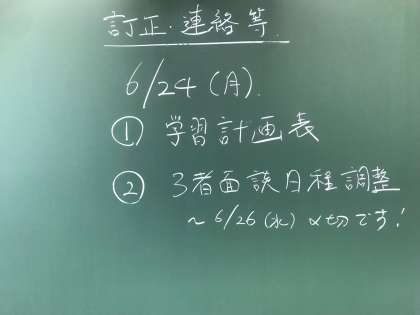 訂正・連絡等.
6/24(月).
① 学習計画表
② 3者面談日程調整
～6/26(水)〆切です!